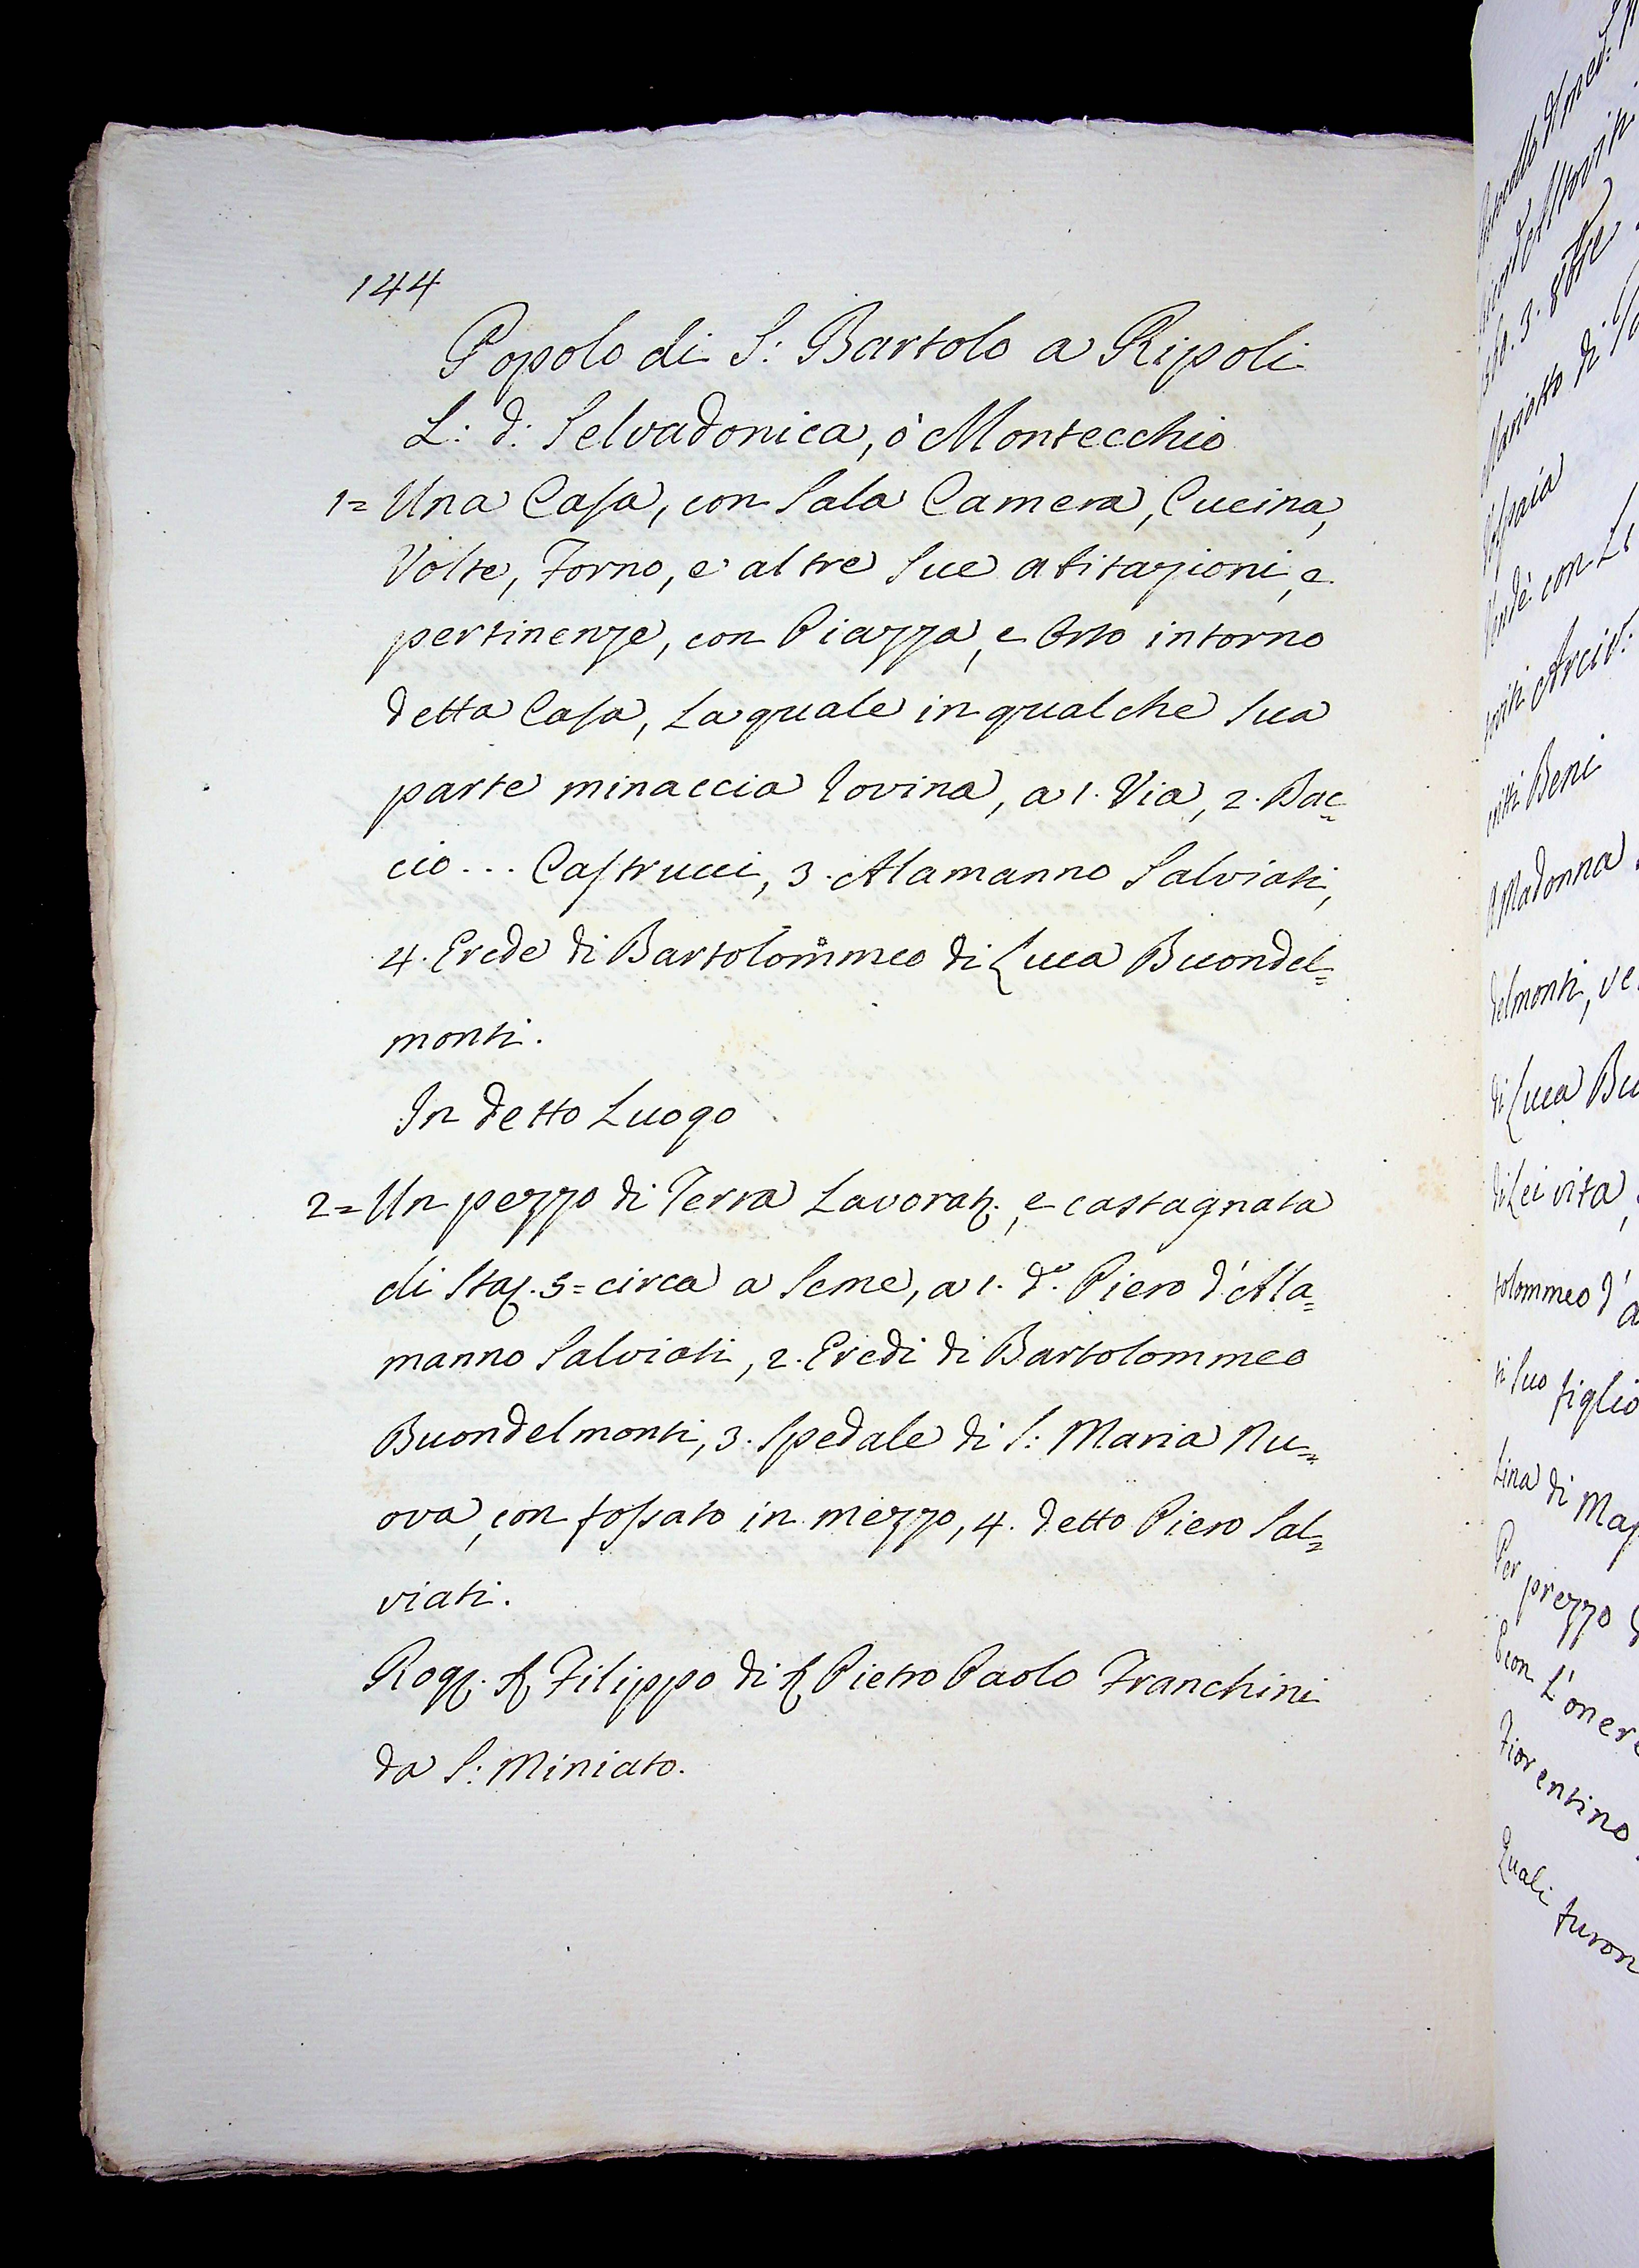 144
Popolo di S: Bartolo a Ripoli
L: d: Selvadonica, ò Montecchio
1= Una Casa, con Sala Camera, Cucina,
Volte, Forno, e altre sue abitazioni, e
pertinenze, con Piazza, e Orto intorno
detta Casa, La quale in qualche sua
parte minaccia rovina, a 1. Via, 2. Bac=
cio... Castrucci, 3. Alamanno Salviati,
4. Erede di Bartolommeo di Luca Buondel=
monti.
In detto Luogo
2= Un pezzo di Terra Lavorat. e castagnata
di Sta. 5= circa a Seme, a 1. do. Piero d'Ala=
manno Salviati, 2. Eredi di Bartolommeo
Buondelmonti, 3. Spedale di S: Maria Nu=
ova, con fossato in mezzo, 4. detto Piero Sal=
viati.
Rog. Filippo di Pietro Paolo Franchini
da S: Miniato.
Mariotto di
Vendè con Li
Beni
Madonna
delmonti, ve
di Luca Bu
di Lei vita,
tolommeo d'a
ti Suo figlio
Lina di Ma
Per prezzo
E con L'onere
Fiorentino
Quali furon